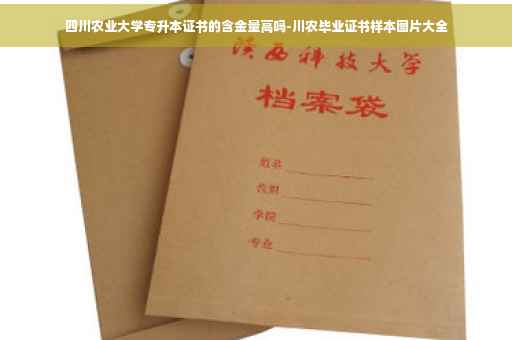 四川农业大学专升本证书的含金量高吗-川农毕业证书样本图片大全
陕西科技大学
档案袋
姓名
学院
专业